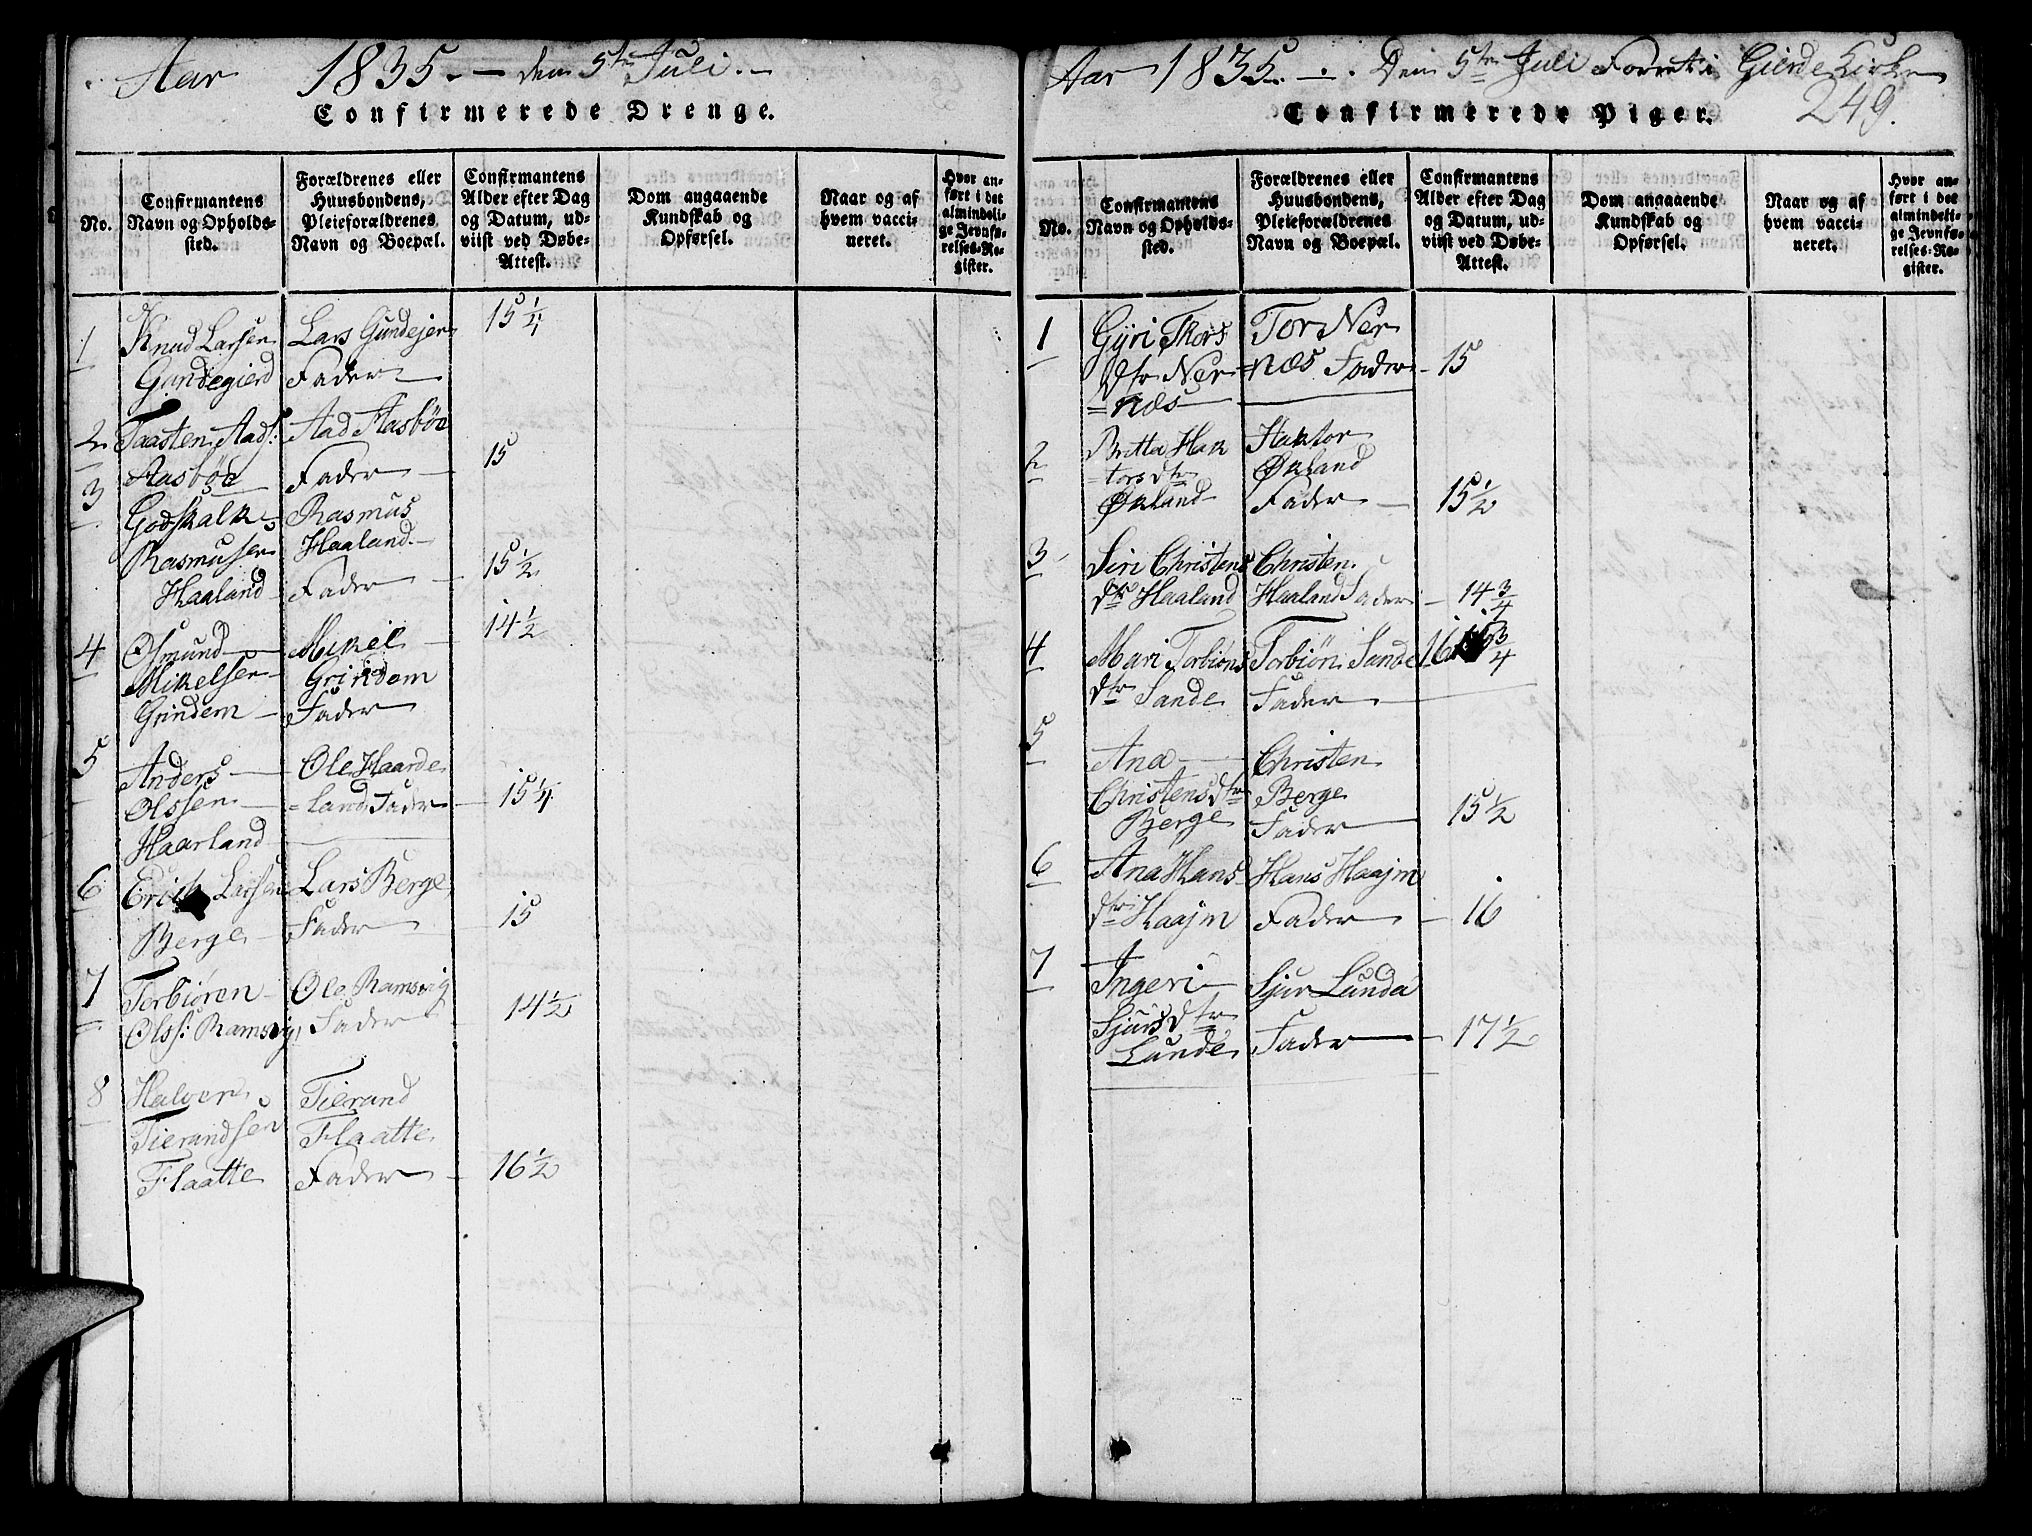 Aar 1835. — den 5te Juli. —
Confirmerede Drenge.
No.
Confirmantens
Navn og Opholds-
sted.
Forældrenes eller
Huusbondens,
Pleieforældrenes
Navn og Boepæl.
Confirmantens
Alder efter Dag
og Datum, ud-
viist ved Døbe-
Attest.
Dom angaaende
Kundskab og
Opførsel.
Naar og af
hvem vacci-
neret.
Hvor an-
ført i det
almindeli-
ge Jevnfø-
relses-Re-
gister.
1 Knud Larsen Lars Gundejer 15 1/4
Gundegierd Fader
2 Taasten Aads: Aad Aasbøe
Aasbøe Fader — 15
3 Godskalk Rasmus
Rasmusen Haaland. —
Haaland — Fader — 15 1/2
4 Osmund — Mikel — 14 1/2
Mikelsen — Grindem
Grindem — Fader
5 Anders — Ole Haarde
Olssen — =land Fader — 15 1/4
Haarland —
6 Erick Larsen Lars Berge
Berge — Fader — 15
7 Torbiøren — Ole Ramsvig
Olss: Ramsvig Fader — 14 1/2
8 Halvor Tierand
Tierandsen Flaatte
Flaatte Fader — 16 1/2
Aar 1835. — . Den 5te Juli Forret: i Gierde Kirke
249.
Confirmerede Piger.
No.
Confirmantens
Navn og Opholds-
sted.
Forældrenes eller
Huusbondens,
Pleieforældrenes
Navn og Boepæl.
Confirmantens
Alder efter Dag
og Datum, ud-
viist ved Døbe-
Attest.
Dom angaaende
Kundskab og
Opførsel.
Naar og af
hvem vacci-
neret.
Hvor an-
ført i det
almindeli-
ge Jevnfø-
relses-Re-
gister.
1 Gyri Thors Tor Ner
Dtr Ner =næs Fader — 15
=næs
2 Britta Hak Haktor
tors dtr Økland
Økland Fader — 15 1/2
3 Siri Christens Christen
dtr Haaland Haaland Fader — 14 3/4
4 Mari Torbiøns Torbiøn Sande 16 3/4
dtr Sande Fader —
5 Ana — Christen
Christens dtr Berge
Berge Fader — 15 1/2
6 Ana Hans Hans Haajm
dtr Haajm Fader — 16
7 Ingeri — Sjur Lunde
Sjurs dtr
Lunde Fader — 17 1/2